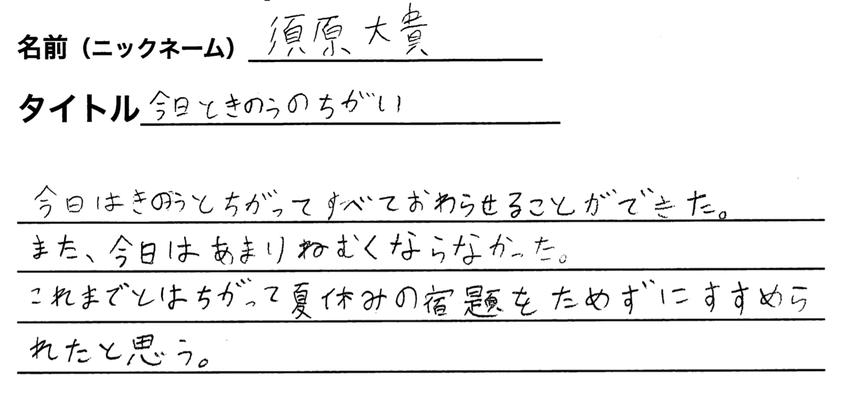 名前（ニックネーム） 須原大貴
タイトル 今日ときのうのちがい
今日はきのうとちがってすべておわらせることができた。
また、今日はあまりねむくならなかった。
これまでとはちがって夏休みの宿題をためずにすすめら
れたと思う。